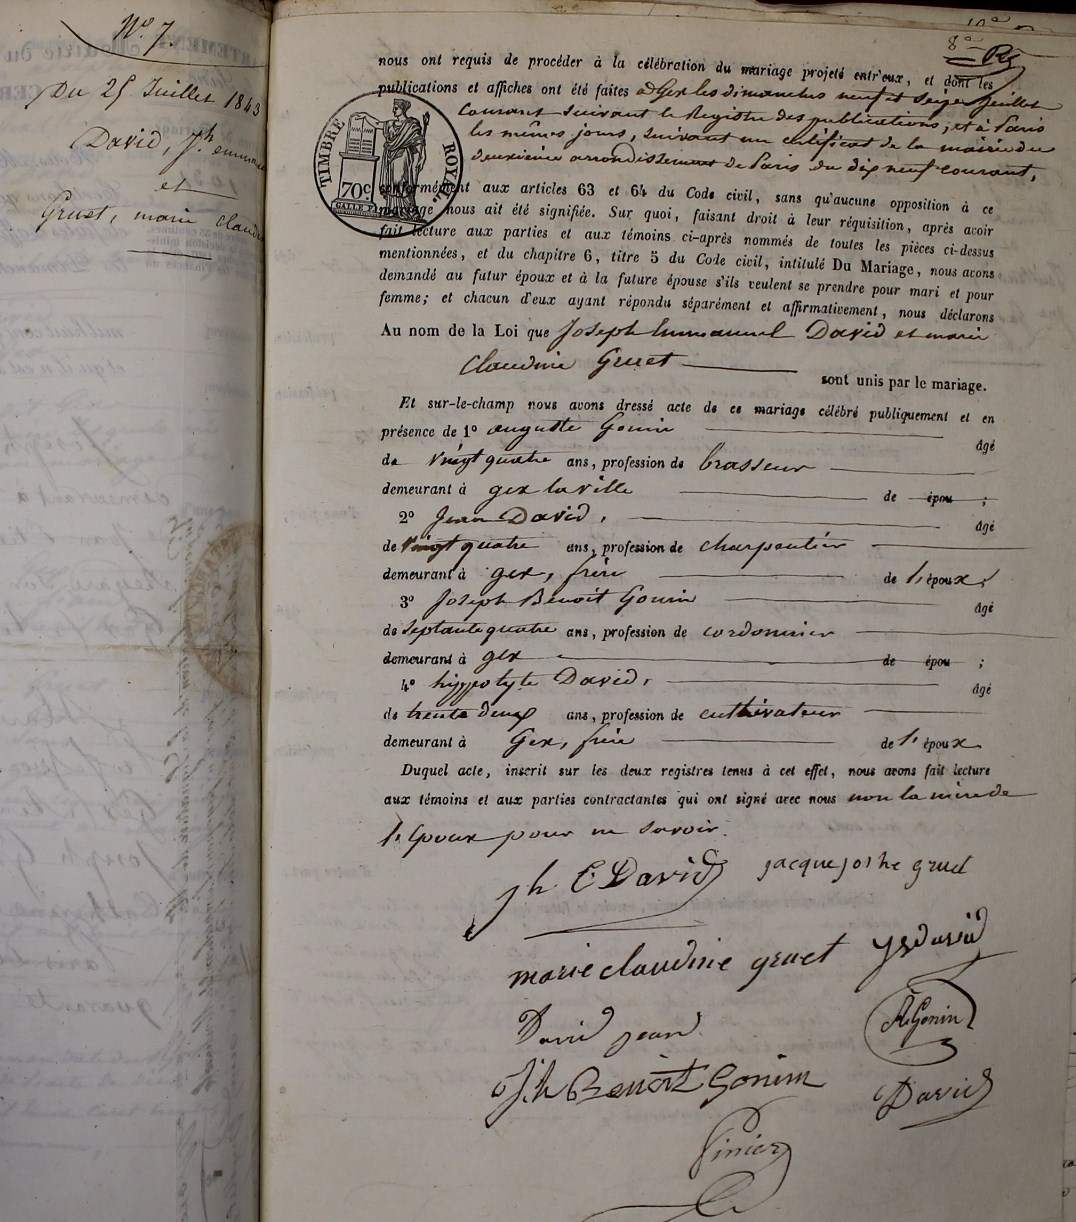 N.o 7.
Du 25 Juillet 1843
David, J.h emmanuel
et
Gruet, marie claudine
8e
nous ont requis de procéder à la célébration du mariage projeté entr'eux, et dont les
publications et affiches ont été faites à Gex les dimanches neuf et seize juillet
courant suivant le Registre des publications, et à Paris
les mêmes jours, suivant un certificat de la mairie du
deuxième arrondissement de Paris du dix neuf courant,
TIMBRE ROYAL
70c
conformément aux articles 63 et 64 du Code civil, sans qu'aucune opposition à ce
mariage nous ait été signifiée. Sur quoi, faisant droit à leur réquisition, après avoir
fait lecture aux parties et aux témoins ci-après nommés de toutes les pièces ci-dessus
mentionnées, et du chapitre 6, titre 5 du Code civil, intitulé Du Mariage, nous avons
demandé au futur époux et à la future épouse s'ils veulent se prendre pour mari et pour
femme; et chacun d'eux ayant répondu séparément et affirmativement, nous déclarons
Au nom de la Loi que Joseph Emmanuel David et marie
Claudine Gruet
sont unis par le mariage.
Et sur-le-champ nous avons dressé acte de ce mariage célébré publiquement et en
présence de 1o auguste Gonin âgé
de vingt quatre ans, profession de brasseur
demeurant à gex la ville de épou ;
2o Jean David, âgé
de vingt quatre ans, profession de charpentier
demeurant à gex, frère de l'époux;
3o Joseph Benoit Gonin âgé
de septante quatre ans, profession de cordonnier
demeurant à gex de épou ;
4o hyppolyte David, âgé
de trente deux ans, profession de cultivateur
demeurant à Gex, frère de l'époux
Duquel acte, inscrit sur les deux registres tenus à cet effet, nous avons fait lecture
aux témoins et aux parties contractantes qui ont signé avec nous non la mère de
l'époux pour ne savoir.
jh E David jacque joshe gruet
marie claudine gruet David
David jean A Gonin
J.h Benoit Gonin David